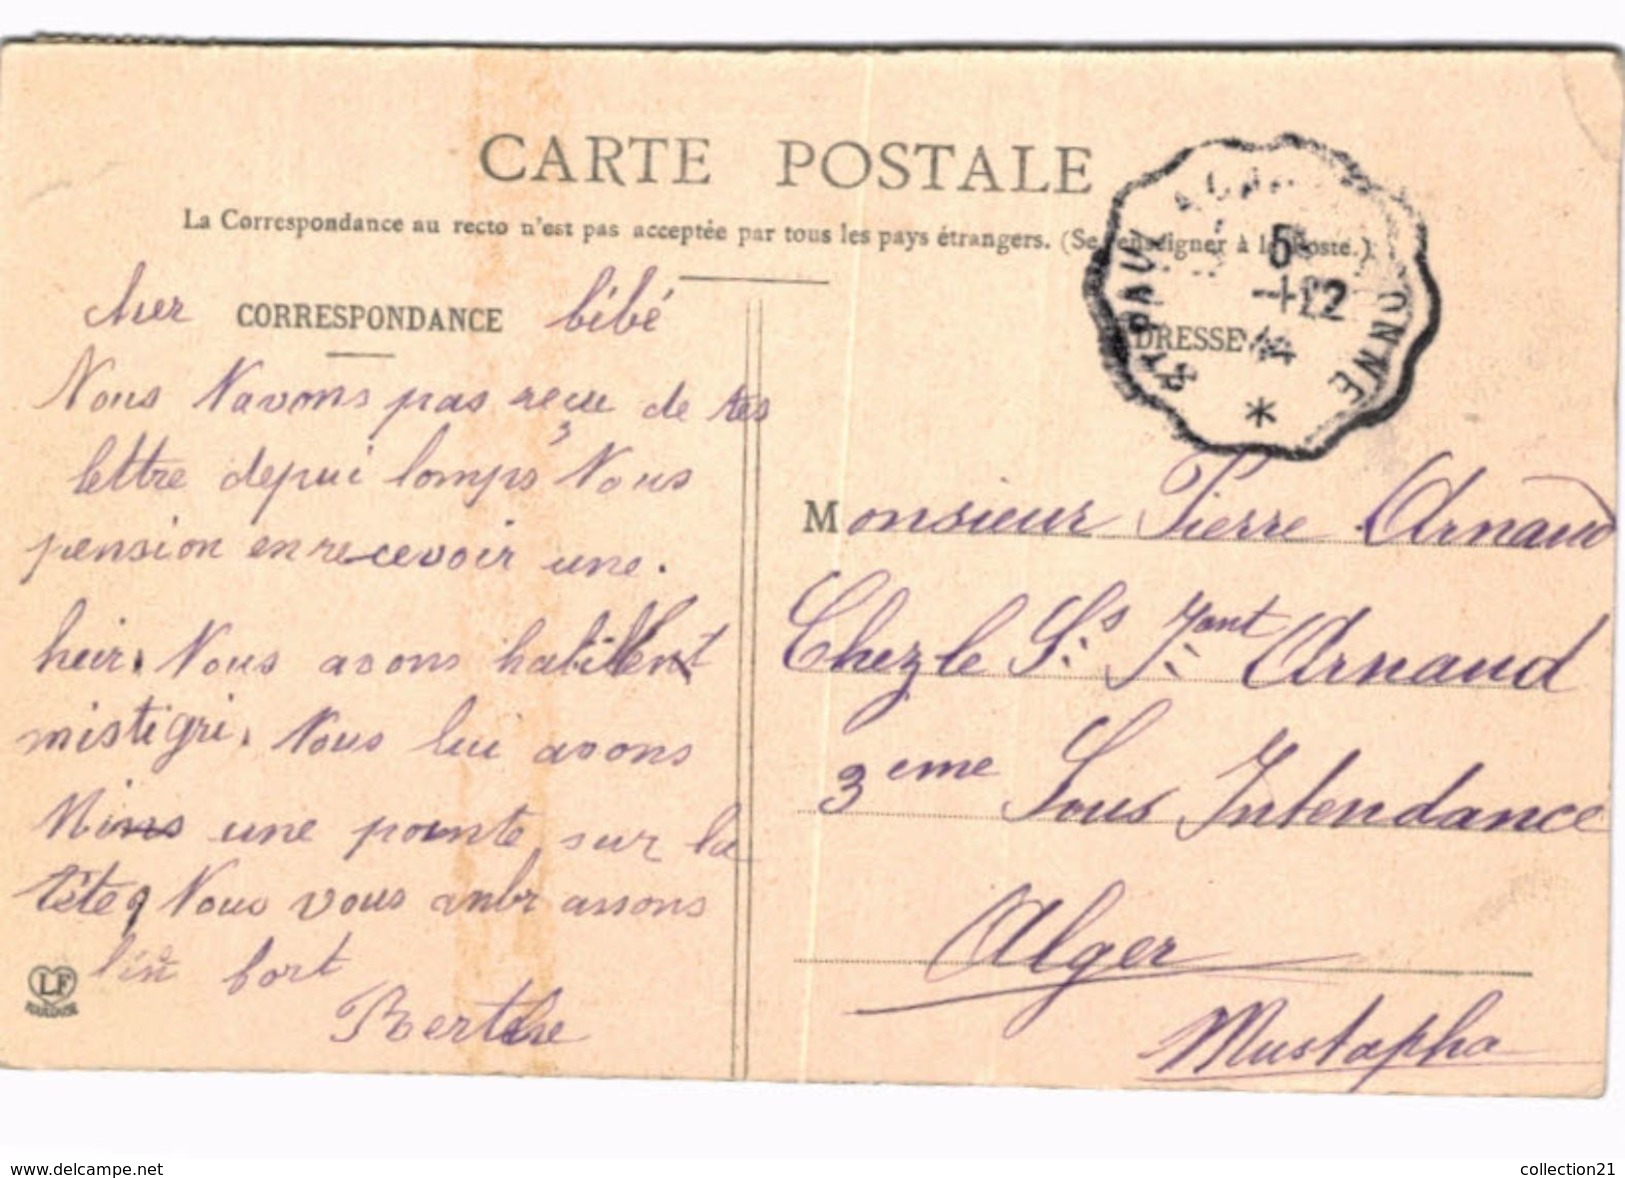 CARTE POSTALE
La Correspondance au recto n'est pas acceptée par tous les pays étrangers. (Se renseigner à la Poste.)
CORRESPONDANCE
cher bibé
Nous Navons pas reçue de tes
lettre depui lomps Nous
pension en recevoir une.
heir. Nous avons habillent
mistigri. Nous lui avons
Mins une pounte sur la
tête Nous vous anbrassons
bin fort
Berthe
LF
TOULOUSE
ADRESSE
ST PAUL
ONNE
5
12
14
*
Monsieur Pierre Arnaud
Chez le Ss Jant Arnaud
3eme Sous Intendance
Alger
Mustapha
www.delcampe.net
collection21